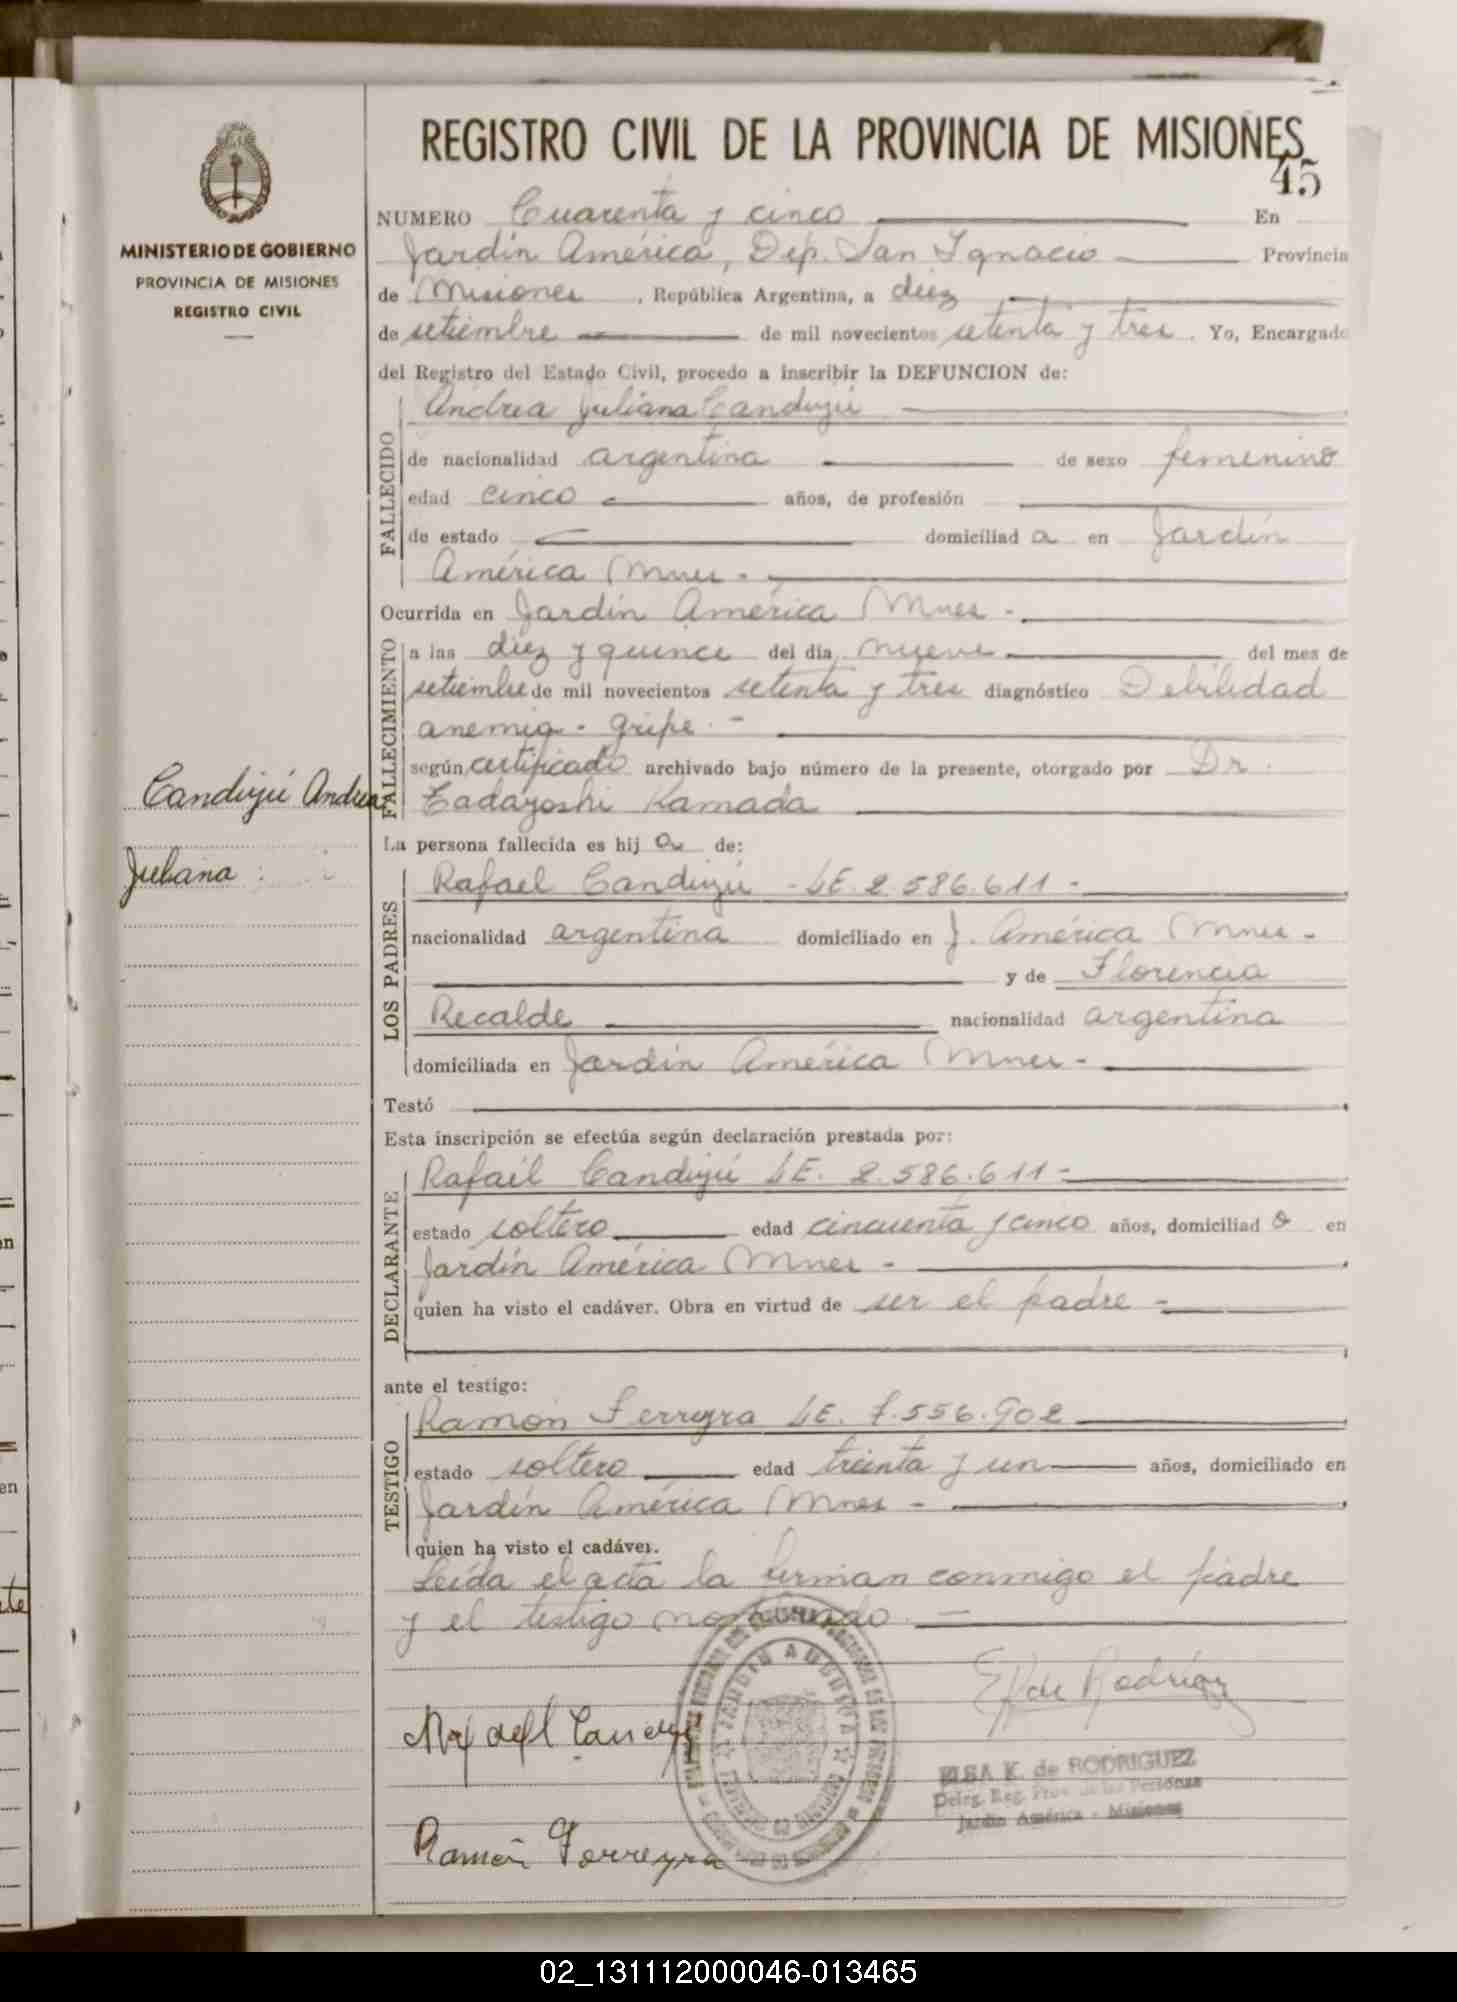 REGISTRO CIVIL DE LA PROVINCIA DE MISIONES
45
MINISTERIO DE GOBIERNO
PROVINCIA DE MISIONES
REGISTRO CIVIL
NUMERO Cuarenta y cinco En
Jardín América, Dep. San Ignacio Provincia
de Misiones , República Argentina, a diez
de setiembre de mil novecientos setenta y tres . Yo, Encargado
del Registro del Estado Civil, procedo a inscribir la DEFUNCION de:
FALLECIDO
Andrea Juliana Candiyú
de nacionalidad argentina de sexo femenino
edad cinco años, de profesión
de estado domiciliad a en Jardín
América Mnes -
Ocurrida en Jardín América Mnes -
FALLECIMIENTO
a las diez y quince del día nueve del mes de
setiembre de mil novecientos setenta y tres diagnóstico Debilidad
anemia - gripe. -
según certificado archivado bajo número de la presente, otorgado por Dr.
Tadayoshi Kamada
Candiyú Andrea
Juliana
La persona fallecida es hij a de:
LOS PADRES
Rafael Candiyú - LE. 2.586.611 -
nacionalidad argentina domiciliado en J. América Mnes -
y de Florencia
Recalde nacionalidad argentina
domiciliada en Jardín América Mnes -
Testó
Esta inscripción se efectúa según declaración prestada por:
DECLARANTE
Rafaél Candiyú LE. 2.586.611 -
estado soltero edad cincuenta y cinco años, domiciliad o en
Jardín América Mnes -
quien ha visto el cadáver. Obra en virtud de ser el padre -
ante el testigo:
TESTIGO
Ramón Ferreyra LE. 7.556.902
estado soltero edad treinta y un años, domiciliado en
Jardín América Mnes -
quien ha visto el cadáver.
Leída el acta la firman conmigo el padre
y el testigo nombrado. -
E K de Rodríguez
Rafaell
JARDIN AMERICA
ELSA K. de RODRIGUEZ
Deleg. Reg. Prov. de las Personas
Jardín América - Misiones
Ramón Ferreyra
02_131112000046-013465